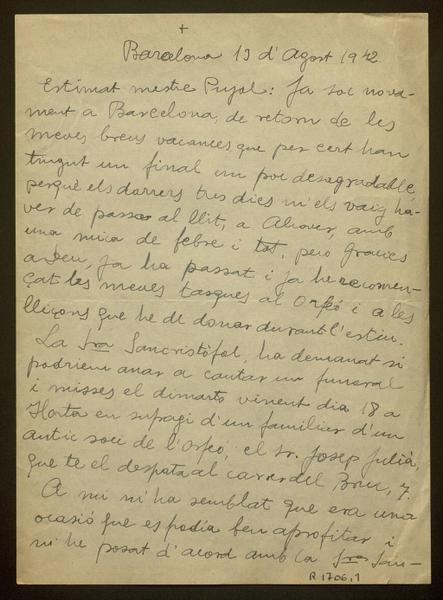 +
Barcelona 13 d'Agost 1942.
Estimat mestre Pujol: Ja soc nova-
ment a Barcelona, de retorn de les
meves breus vacances que per cert han
tingut un final un poc desagradable,
perquè els darrers tres dies m'els vaig ha-
ver de passar al llit, a Alcover, amb
una mica de febre i tot, pero gracies
a Deu, ja ha passat i ja he recomen-
çat les meves tasques al Orfeó i a les
lliçons que he de donar durant l'estiu.
La Sra Sancristòfol, ha demanat si
podriem anar a cantar un funeral
i misses el dimarts vinent dia 18 a
Horta en sufragi d'un familiar d'un
antic soci de l'Orfeó, el sr. Josep Julià,
que te el despatx al carrer del Bruc, 7.
A mi m'ha semblat que era una
ocasió que es podia ben aprofitar i
m'he posat d'acord amb la Sra San-
R 1706,1